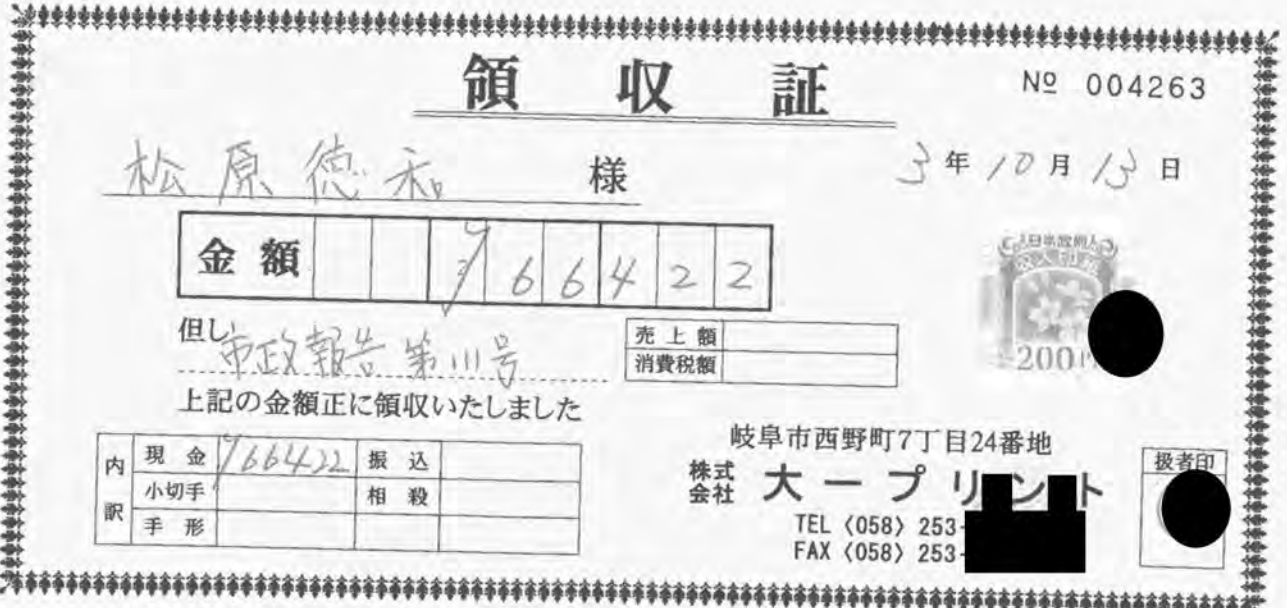 領収証
№ 004263
松原徳和 様
3年10月13日
金額 ¥66422
但し 市政報告第111号
売上額
消費税額
上記の金額正に領収いたしました
200円
内訳
現金 ¥66422 振込
小切手 相殺
手形
岐阜市西野町7丁目24番地
株式会社 大一プリント
TEL〈058〉253-
FAX〈058〉253-
扱者印